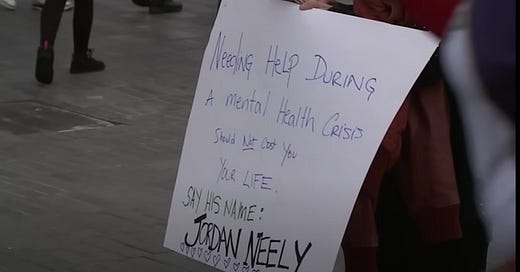 Needing Help During
A mental Health Crisis
Should Not Cost You
Your Life.
Say His Name:
Jordan Neely